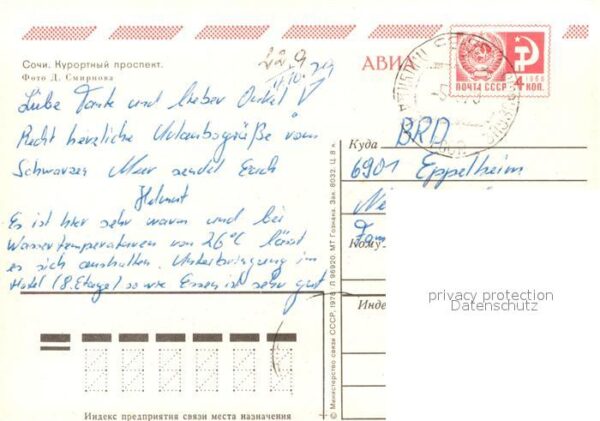 Сочи. Курортный проспект.
Фото Д. Смирнова
22.9
АВИА
1966
ПОЧТА СССР 4 КОП.
Liebe Tante und lieber Onkel
Recht herzliche Urlaubsgrüße vom
Schwarzen Meer sendet Euch
Helmut
Es ist hier sehr warm und bei
Wassertemperaturen von 26°C lässt
es sich aushalten. Unterbringung im
Hotel (8. Etage) so wie Essen ist sehr gut
Куда BRD
6901 Eppelheim
Кому
Инде
privacy protection
Datenschutz
© Министерство связи СССР, 1978. Л 96920. МТ Гознака. Зак. 8032. Ц. 8 к.
Индекс предприятия связи места назначения